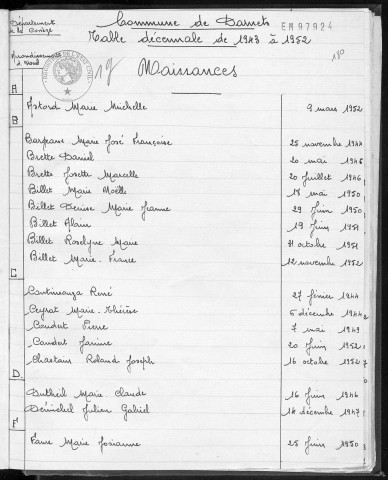 Département de la Corrèze
Commune de Darnets
EM97924
Table décennale de 1943 à 1952
Arrondissement d'Ussel
180
Naissances
A
Astord Marie Michelle 9 mars 1952
B
Marie José Françoise 25 novembre 1944
Brette Daniel 20 mai 1946
Brette Josette Marcelle 20 juillet 1946
Billet Marie Noëlle 18 mai 1950
Billet Denise Marie Jeanne 29 juin 1950
Billet Alain 19 juin 1951
Billet Roselyne Marie 11 octobre 1951
Billet Marie-France 12 novembre 1952
C
René 27 février 1944
Ceyrat Marie-Thérèse 5 décembre 1944
Coudert Pierre 7 mai 1949
Coudert Janine 20 juin 1952
Chastain Roland Joseph 16 octobre 1952
D
Dutheil Marie Claude 16 juin 1946
Julien Gabriel 18 décembre 1947
F
Faure Marie Josianne 25 juin 1950